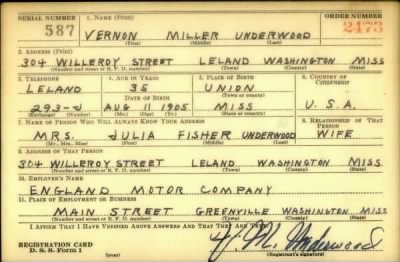 SERIAL NUMBER 1. NAME (Print) ORDER NUMBER
587 VERNON MILLER UNDERWOOD 2473
(First) (Middle) (Last)
2. ADDRESS (Print)
304 WILLEROY STREET LELAND WASHINGTON MISS
(Number and street or R. F. D. number) (Town) (County) (State)
3. TELEPHONE 4. AGE IN YEARS 5. PLACE OF BIRTH 6. COUNTRY OF CITIZENSHIP
LELAND 35 UNION
DATE OF BIRTH (Town or county)
293-J AUG 11 1905 MISS. U.S.A.
(Exchange) (Number) (Mo.) (Day) (Yr.) (State or country)
7. NAME OF PERSON WHO WILL ALWAYS KNOW YOUR ADDRESS 8. RELATIONSHIP OF THAT PERSON
MRS. JULIA FISHER UNDERWOOD WIFE
(Mr., Mrs., Miss) (First) (Middle) (Last)
9. ADDRESS OF THAT PERSON
304 WILLEROY STREET LELAND WASHINGTON MISS
(Number and street or R. F. D. number) (Town) (County) (State)
10. EMPLOYER'S NAME
ENGLAND MOTOR COMPANY
11. PLACE OF EMPLOYMENT OR BUSINESS
MAIN STREET GREENVILLE WASHINGTON MISS
(Number and street or R. F. D. number) (Town) (County) (State)
I AFFIRM THAT I HAVE VERIFIED ABOVE ANSWERS AND THAT THEY ARE
REGISTRATION CARD
D. S. S. Form 1 (over) (Registrant's signature)
V. M. Underwood